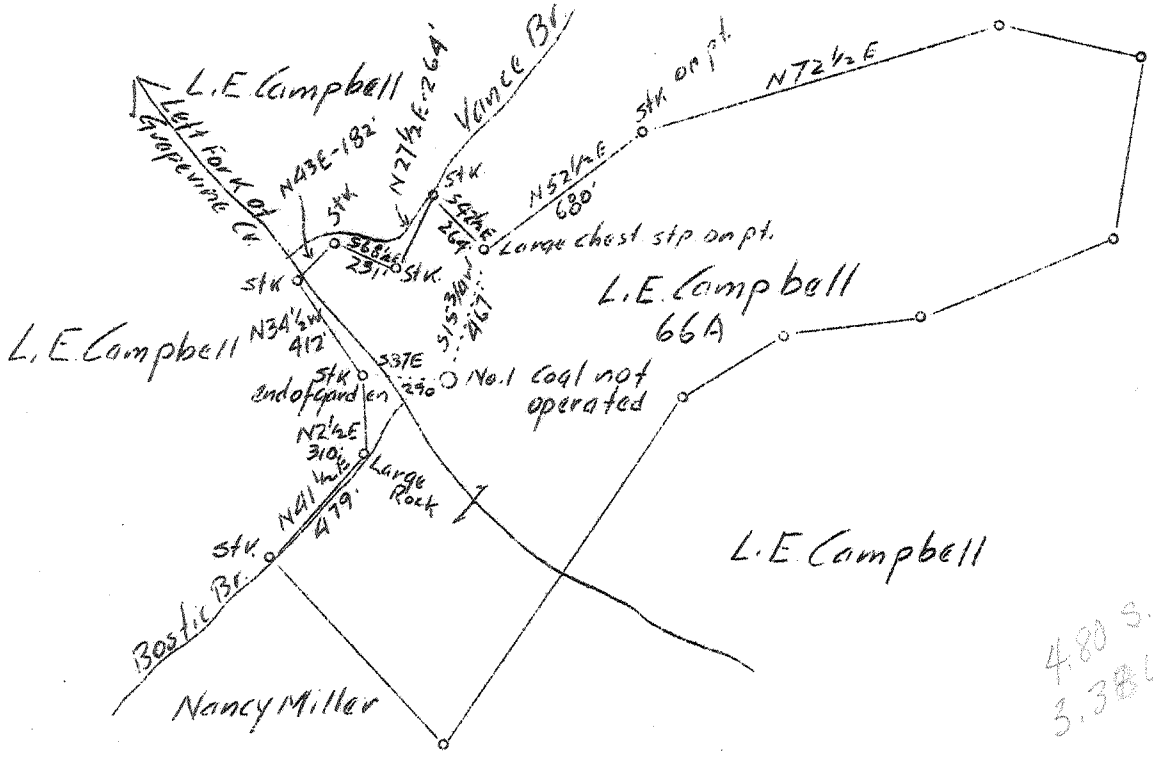 L.E. Campbell
Left Fork of
Grapevine Cr.
N43E-182'
Stk
N27½E-264'
Vance Br.
Stk.
S47½E
264'
N52½E
680'
Stk. on pt.
N72½E
Large chest stp. on pt.
S68½E
231'
Stk.
Stk
S15¾W
467'
L.E. Campbell
66A
L.E. Campbell
N34½W
412'
S37E
290
Stk
End of garden
No.1 Coal not
operated
N2½E
310'
Large
Rock
N41½E
479'
Stk.
Bostic Br.
L.E. Campbell
Nancy Miller
4.80 S.